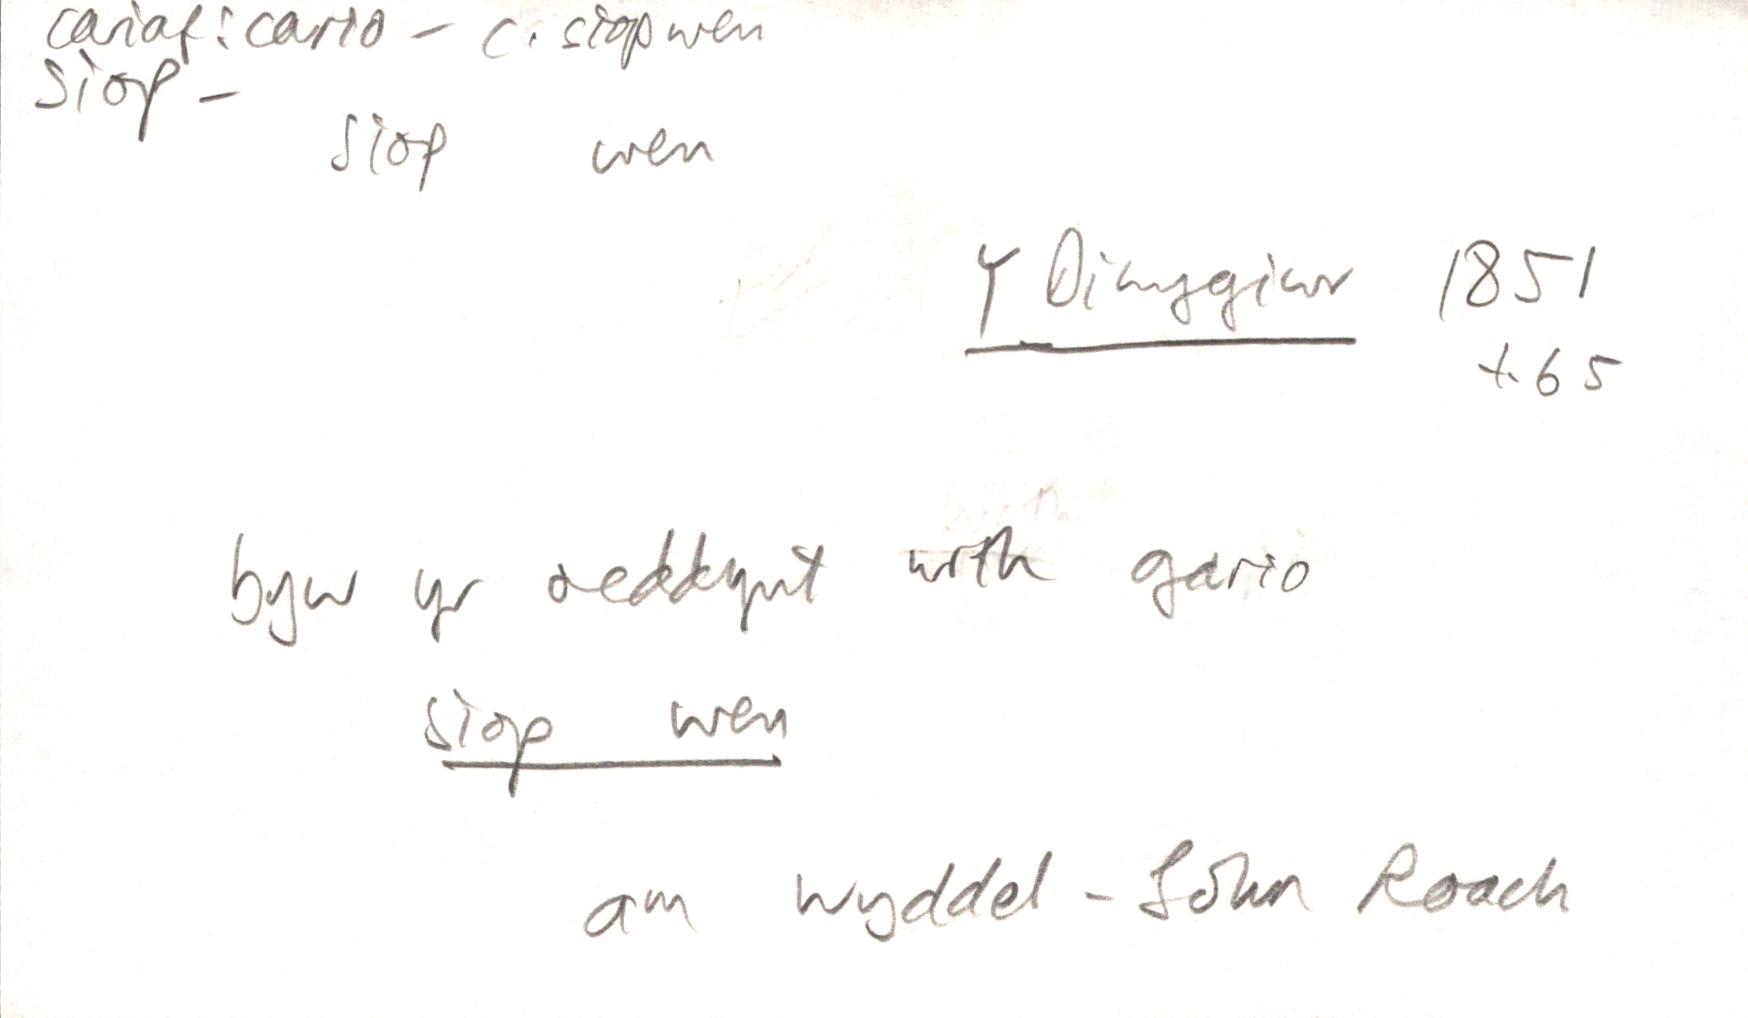 cariaf: cario - c. siop wen
siop -
siop wen
Y Diwygiwr 1851
t. 65
byw yr oeddynt wrth gario
siop wen
am wyddel - John Roach